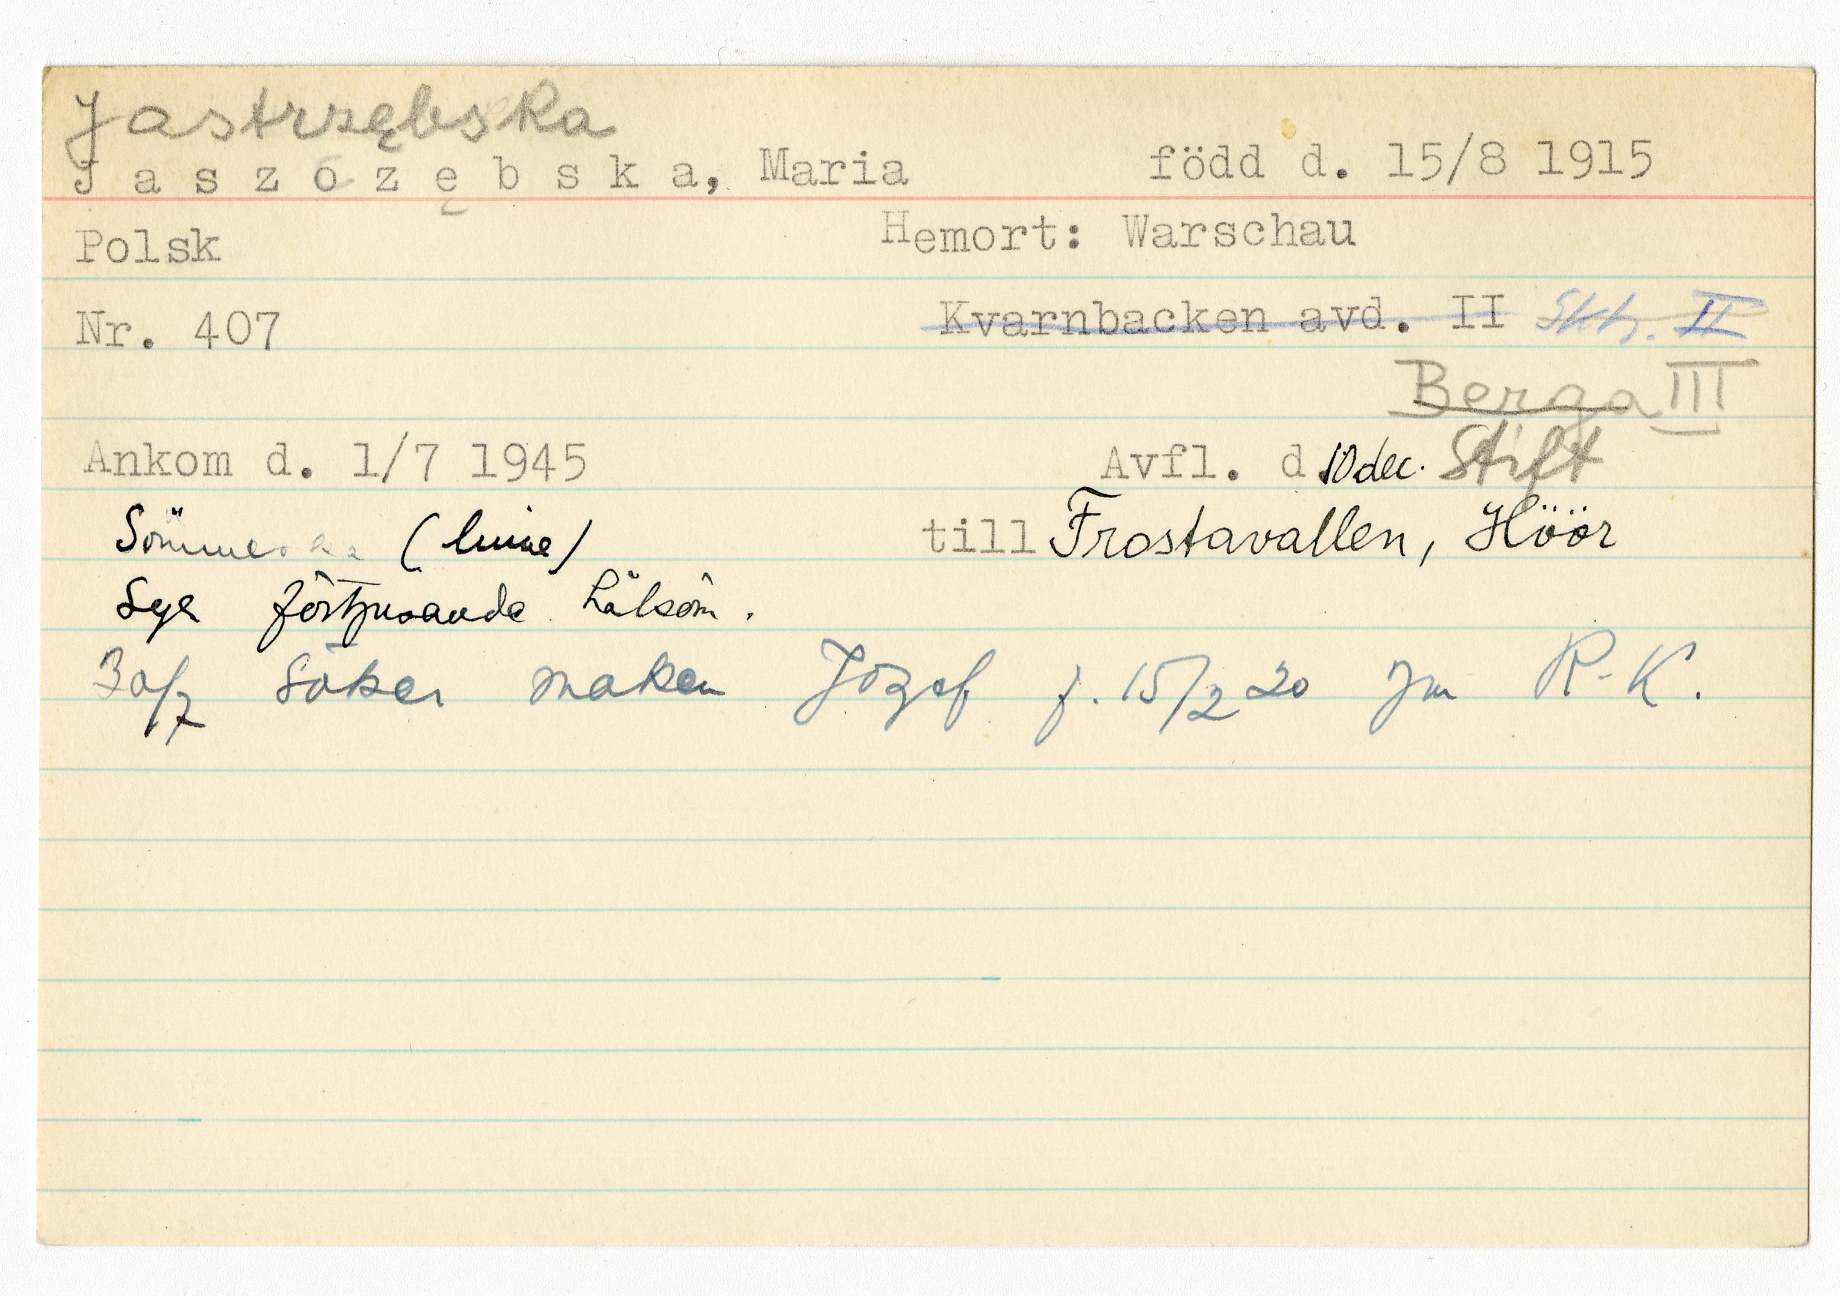 Jastrzębska
Jaszózębska, Maria född d. 15/8 1915
Polsk Hemort: Warschau
Nr. 407 Kvarnbacken avd. II Skh. II
Berga III
Ankom d. 1/7 1945 Avfl. d 10 dec. Stift
(linne) till Frostavallen, Höör
Sye förtjusande
30/7 Söker maken Józef f. 15/2 20 gm R-K.